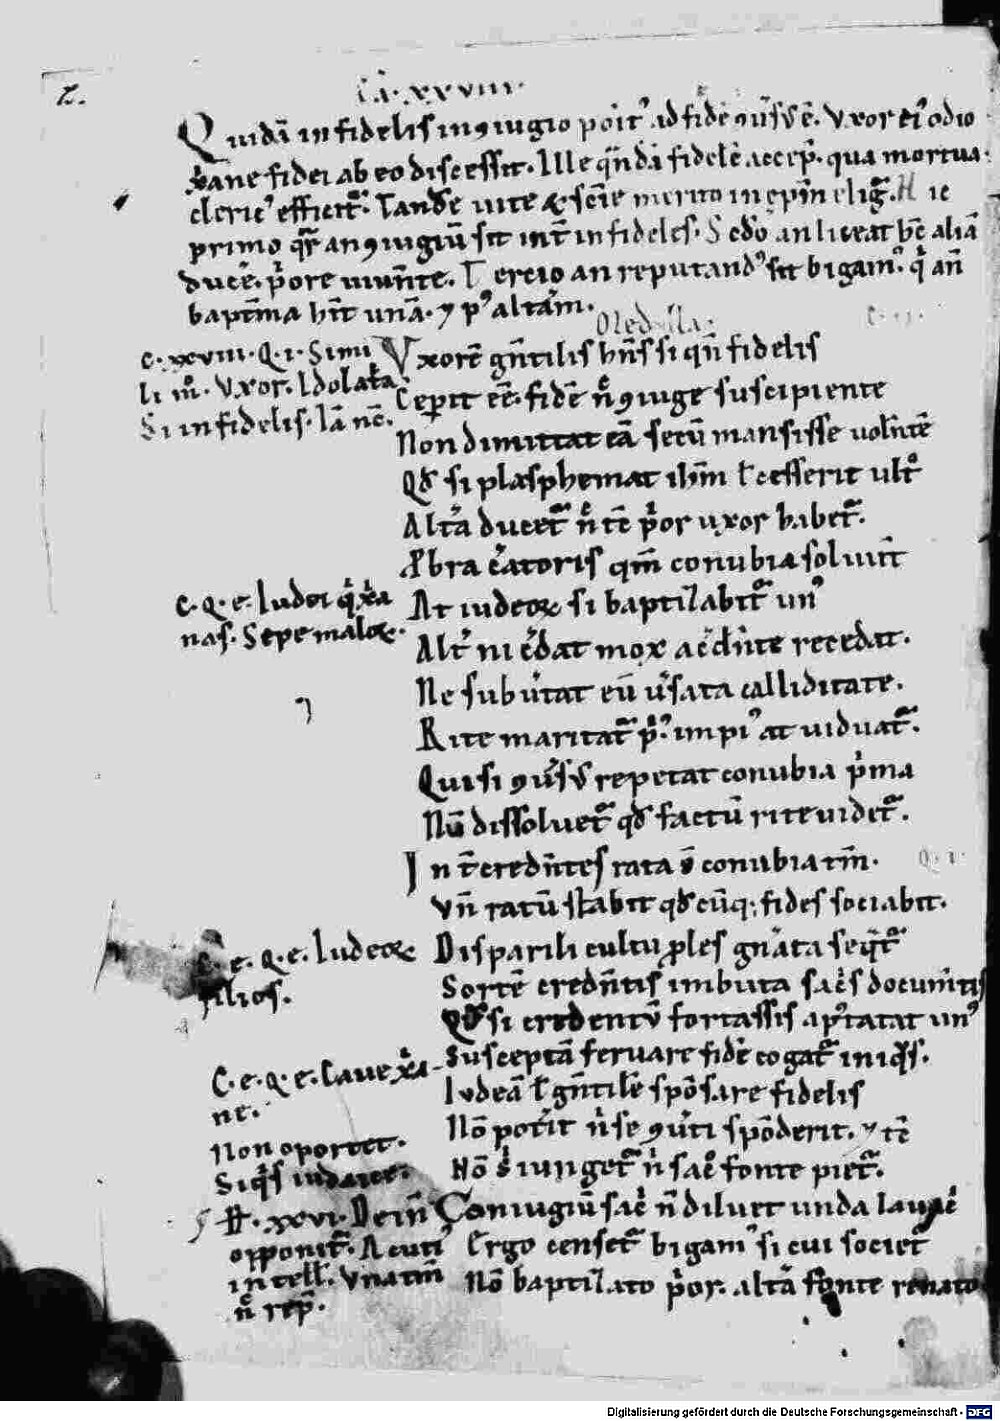 Ca. xxviii.
2.
Quidā infidelis in ꝯiugio poit᷒ ad fidē ꝯu͛sꝰ ē. Vxor ei᷒ odio
xp̄iane fidei ab eo discessit. Ille qn̄dā fidelē accep̄. qua mortua
cleric᷒ efficit᷑. Tandē uite & scīe merito in ep̄m elig᷑. Hic
primo qr̄ an ꝯiugiū sit int̄ infideles. Scd̄o an liceat hc̄ aliā
duce᷑. p̄ore uiuēte. Tercio an reputand᷒ sit bigam᷒. q̄ an̄
baptm̄a hīt unā. ⁊ p᷒ altām.
c. xxviii. Q. i. Simi
li m̊. Vxor. Idolat᷑a
Si infidelis. Iā nc̄.
Vxorē gn̄tilis hn̄s si qn̄ fidelis
Ceperit eē. fidē n̄ ꝯiuge suscipiente
Non dimittat eā secū mansisse uolēntē
Qđ si plasphemat ihm̄ ł cesserit ult᷑
Altā ducet᷑ n̄ tē p̄or uxor habet᷑.
Ebra c̄atoris qm̄ conubia soluīt
c. Q. e. Iudei q̄ xp̄ia
nas. Sepe maloꝝ.
At iudeoꝝ si baptizabit᷑ un᷒
Alt̄ ni c̄dat mox accdn̄te recedat.
Ne subu͛tat eū u͛sata calliditate.
Rite maritat᷑ p᷒. impi᷒ at uiduat᷑.
Qui si ꝯu͛sꝰ repetat conubia p̄ma
Nū dissoluet᷑ qđ factū rite uidet᷑.
Int̄ credn̄tes rata s̄ conubia tm̄.
Vn̄ ratū stabit qđcūq; fides sociabit.
c. e. Q. e. Iudeoꝝ
filios.
Disparili cultu ꝓles gnata seqt᷑
Sortē credn̄tis imbuta sac̄s documn̄tis
Qđ si credentū fortassis ap̄tatat un᷒
Susceptā seruare fidē cogat᷑ iniqs.
C. e. Q. e. Caue xp̄ia
ne.
Iudeā ł gn̄tilē spōsare fidelis
Nō pot͛it n̄ se ꝯu͛ti spōderit. ⁊ tē
Non oportet.
Siq̄s iudaice.
Nō s̄ iunget᷑ n̄ sac̄o fonte piet᷑.
xxvi. Dein̄
opponit᷑. Acuti᷒
intell. Vna tm̄
n̄ rep̄.
Coniugiū sac̄ n̄ diluet unda lauac̄
Ergo censet᷑ bigam᷒ si cui societ᷑
Nō baptizato p̄or. altā fonte renato
Digitalisierung gefördert durch die Deutsche Forschungsgemeinschaft - DFG